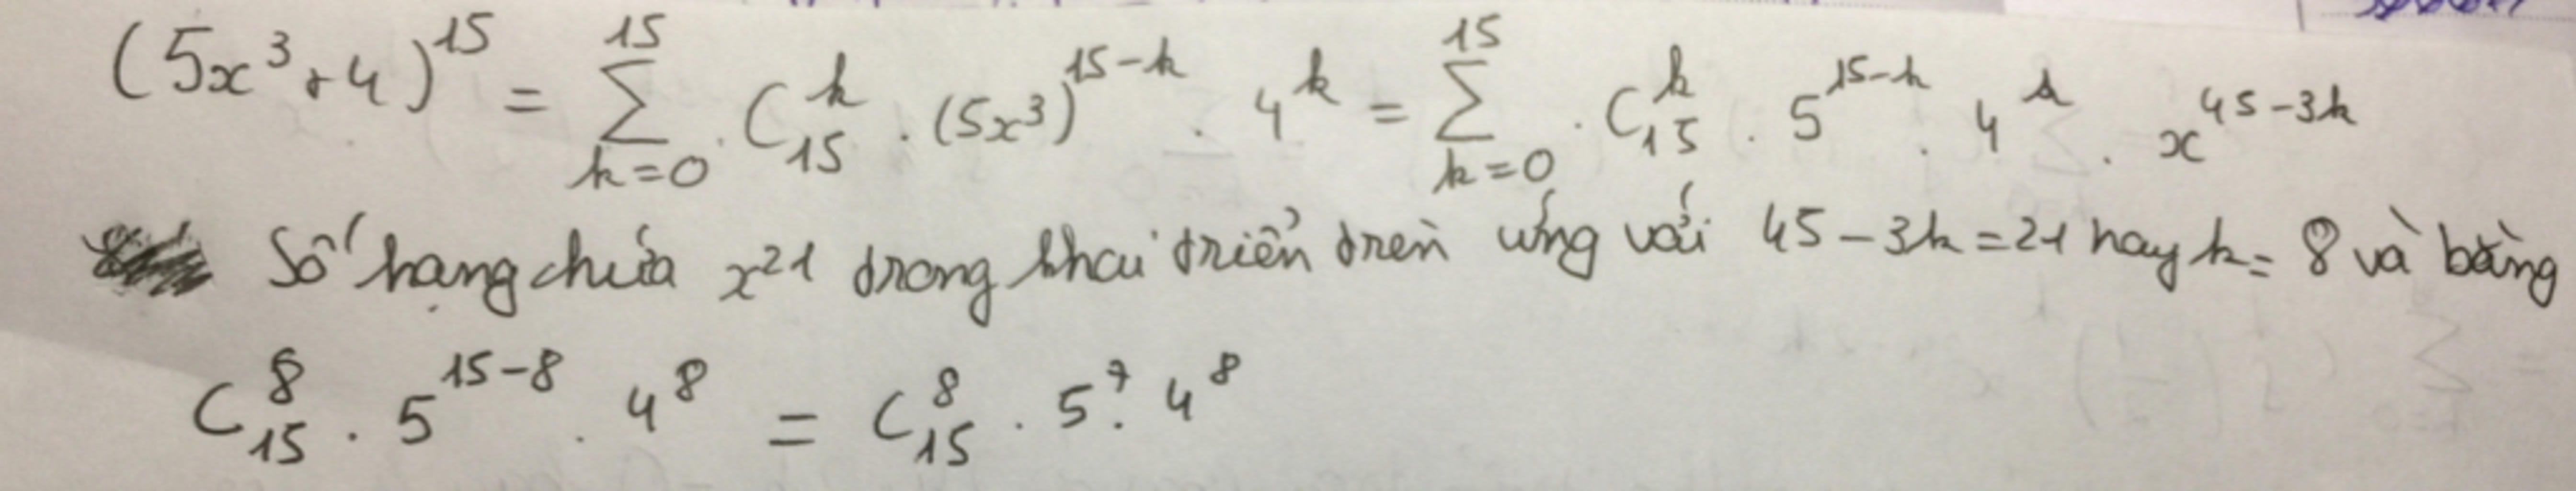 (5x³+4)¹⁵ = ∑_{k=0}^{15} . C_{15}^{k} . (5x³)^{15-k} . 4^{k} = ∑_{k=0}^{15} . C_{15}^{k} . 5^{15-k} . 4^{k} . x^{45-3k}
Số hạng chứa x²¹ trong khai triển trên ứng với 45-3k=21 hay k=8 và bằng
C_{15}^{8} . 5^{15-8} . 4^{8} = C_{15}^{8} . 5^{7} . 4^{8}